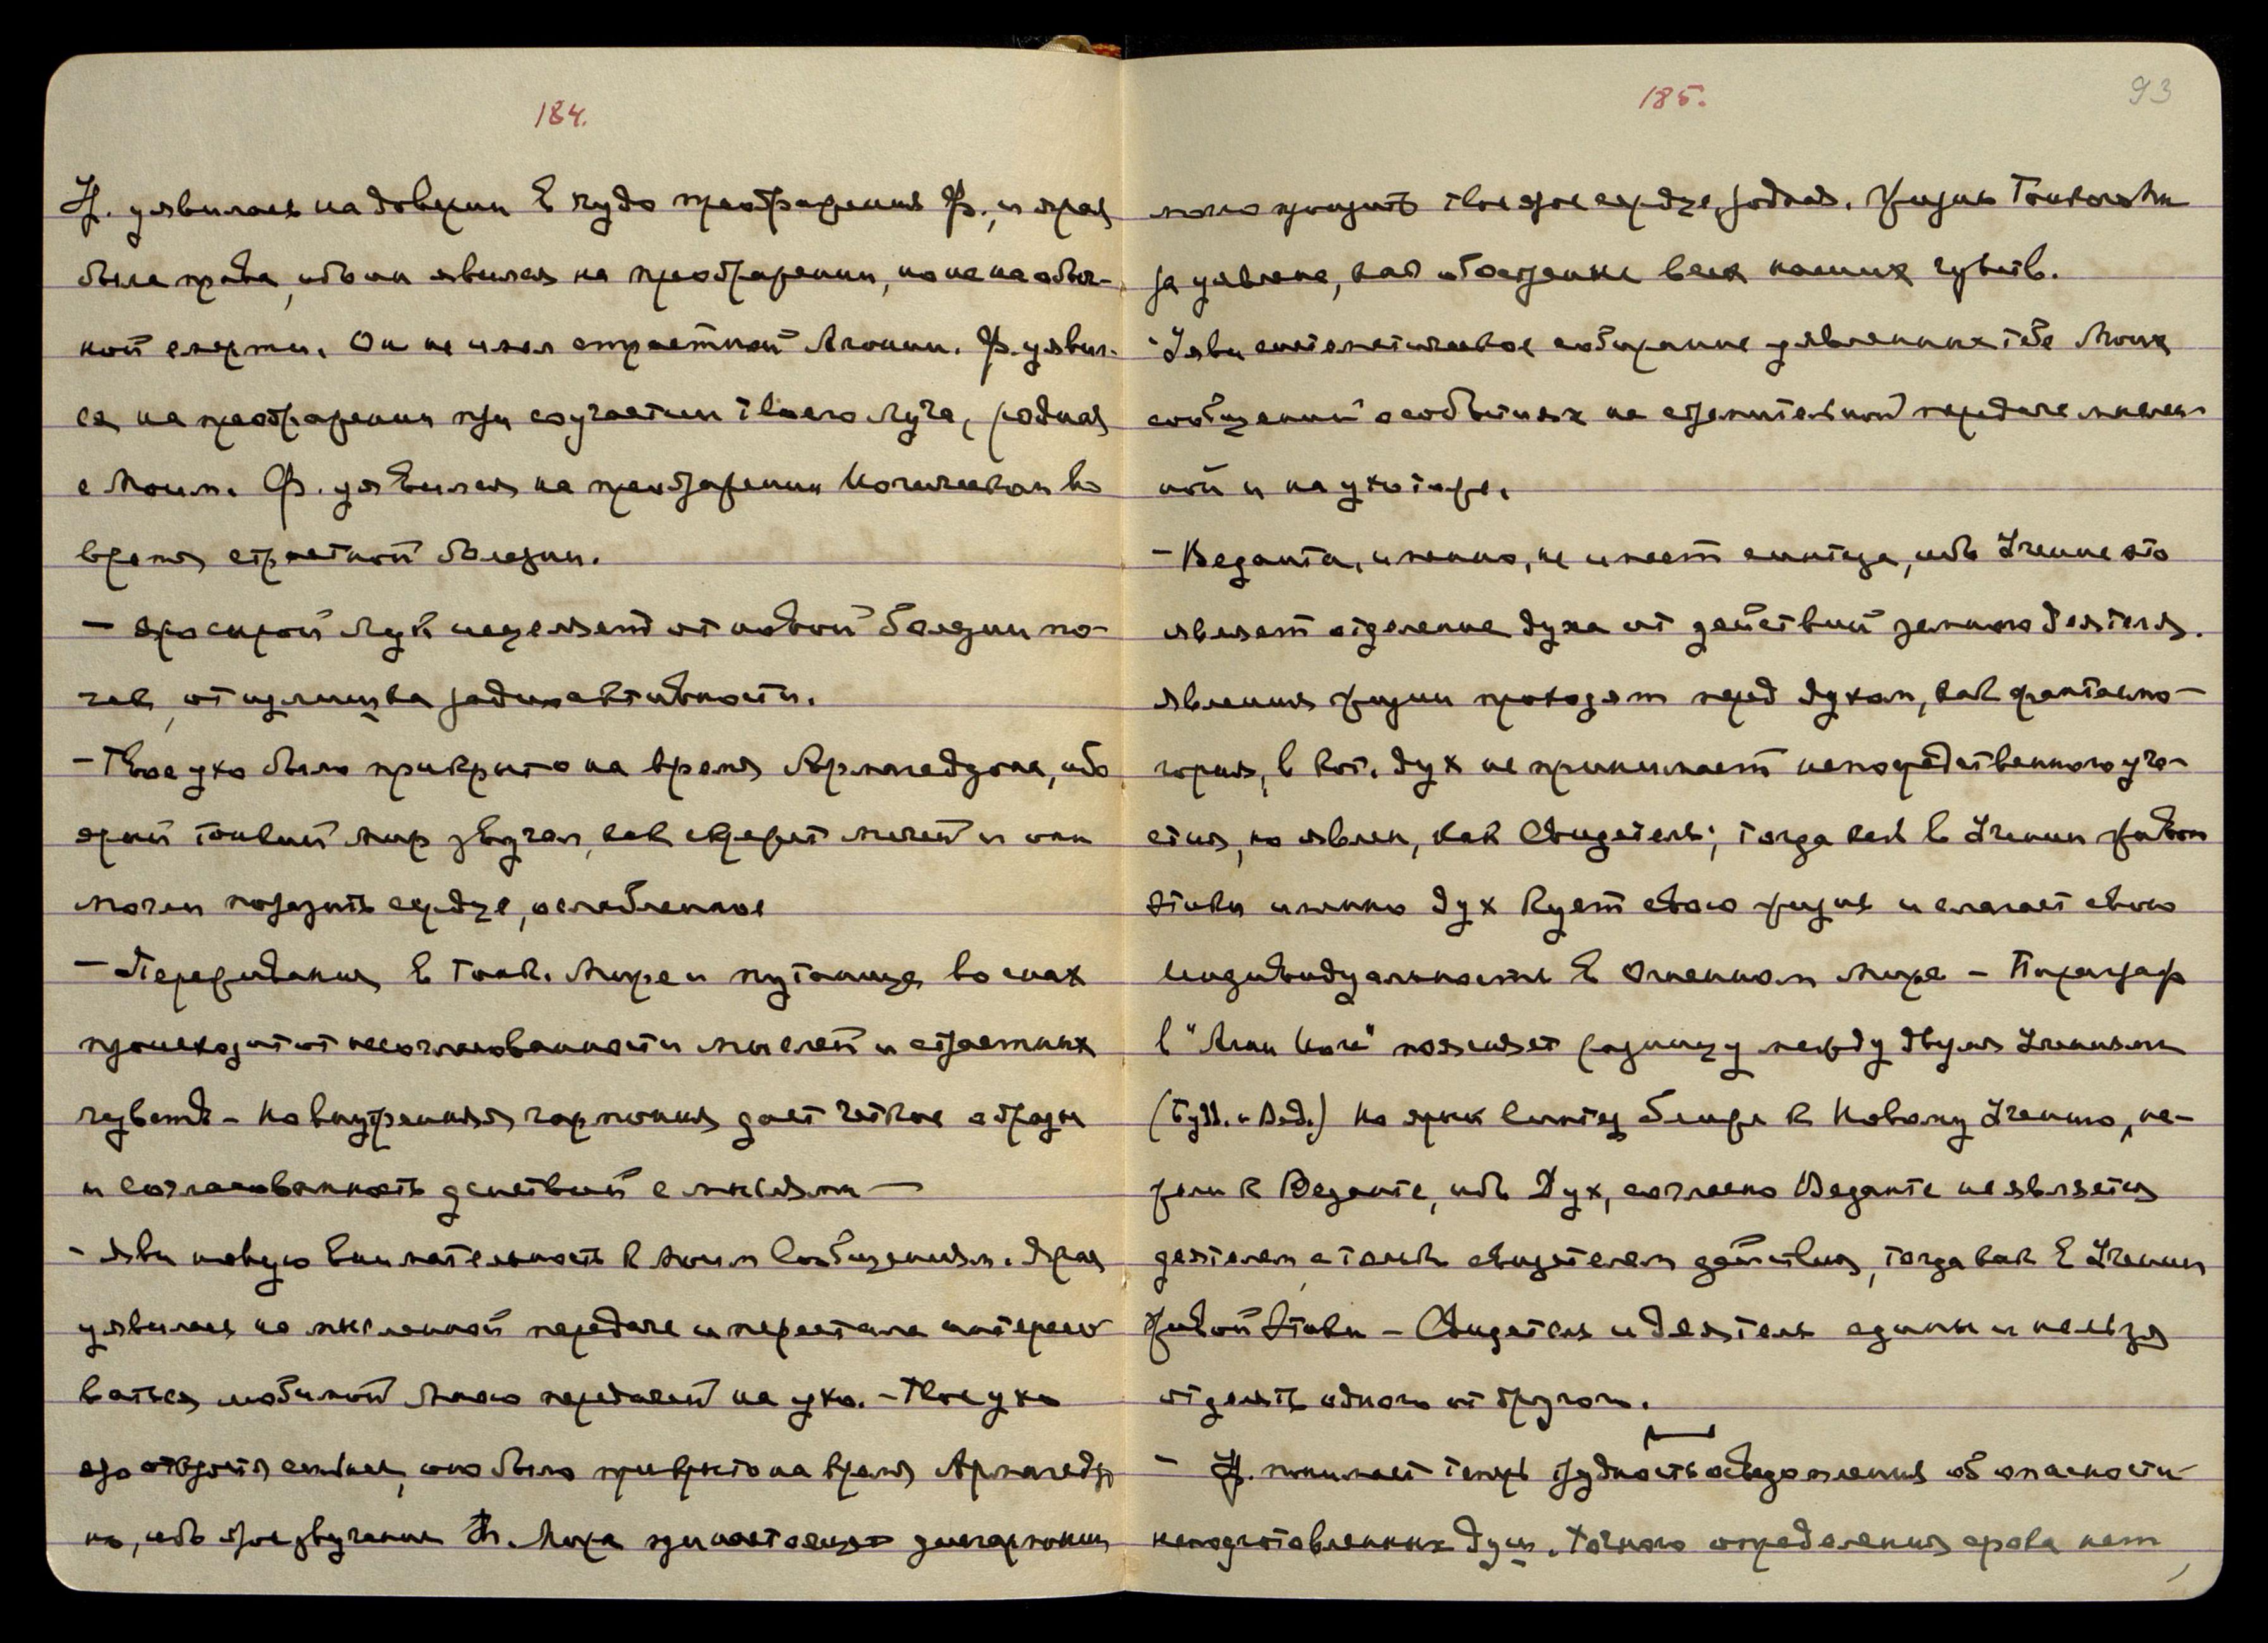 184.
У. уявилась на доверии в чудо преображения Ф., и ярая
была права, ибо он явился на преображении, но не на обыч-
ной смерти. Он не имел страстной Агонии. Ф. уявил-
ся на преображении при соучастии твоего Луча, родная
с Моим. Ф. уявился на преображении Космическом во
время страстной болезни.
— яро сырой Лук исцеляет от новой болезни по-
чек, от излишка радиоактивности.
— Твое ухо было прикрыто на время Армагеддона, ибо
ярый тонкий мир звучал, как скрежет мечей и они
могли поразить сердце, ослабленное
— Переживания в Тонк. Мире и путаница во снах
происходит от несогласованности мыслей и страстных
чувств – но внутренняя гармония дает четкие образы
и согласованность действий с мыслями —
- Яви новую внимательность к Моим Сообщениям. Ярая
уявилась на мысленной передаче и перестала интересо-
ваться любимой Мною передачей на ухо. – Твое ухо
яро откроется сейчас, оно было прикрыто на время Армагеддо
на, ибо ярое звучание Т. Мира при настоящей дисгармонии
185.
93
могло пронзить твое ярое сердце, родная. Жизнь Тонкого Ми
ра уявлена, как обострение всех наших чувств.
- Уяви систематическое собирание уявленных тебе Моих
сообщений о событиях на стремительной передаче мыслен-
ной и на ухо также.
– Веданта, именно, не имеет синтеза, ибо Учение это
являет отделение духа от действий земного деятеля.
явления жизни проходят перед духом, как фантасмо-
гория, в кот. дух не принимает непосредственного уча-
стия, но явлен, как Свидетель; тогда как в Учении Живой
Этики именно дух кует свою жизнь и слагает свою
индивидуальность в Огненном Мире – Параграф
в "Агни Йоге" поясняет разницу между двумя Учениями
(Будд. и Вед.) Но ярый синтез ближе к Новому Учению, не-
жели к Веданте, ибо Дух, согласно Веданте не является
деятелем а только свидетелем действия, тогда как в Учении
Живой Этики – Свидетель и деятель едины и нельзя
отделить одного от другого.
– У. понимает теперь трудность осведомления об опасности
неподготовленных душ. Точного определения срока нет,